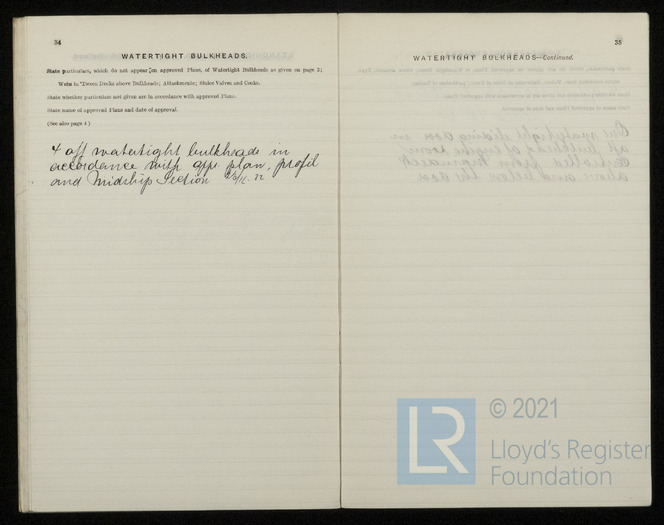 34
WATERTIGHT BULKHEADS.
State particulars, which do not appear on approved Plans, of Watertight Bulkheads as given on page 2;
Webs in 'Tween Decks above Bulkheads; Attachments; Sluice Valves and Cocks.
State whether particulars not given are in accordance with approved Plans.
State name of approved Plans and date of approval.
(See also page 4.)
4 off watertight bulkheads in
accordance with app. plan, profil
and Midship Section
35
WATERTIGHT BULKHEADS—Continued.
LR
© 2021
Lloyd's Register
Foundation